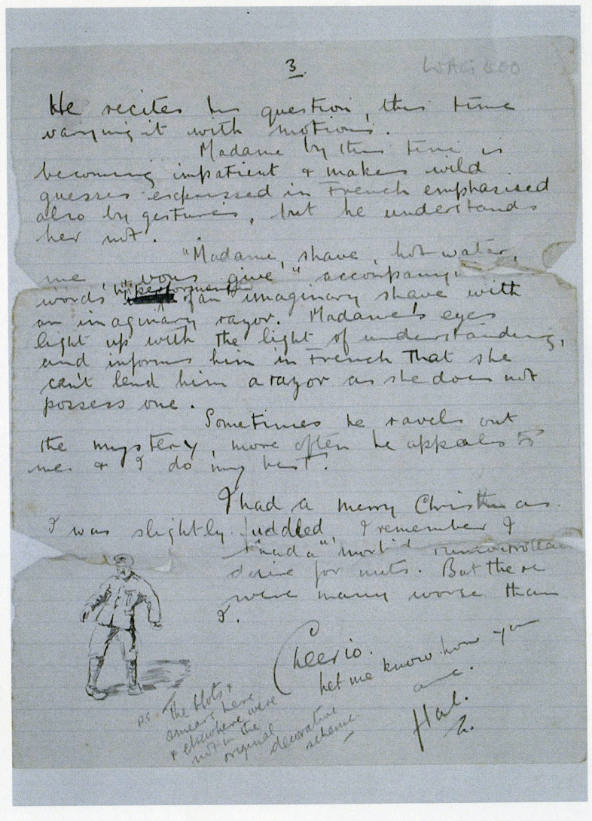 3.
He recites his question, this time
varying it with motions.
Madame by this time is
becoming impatient & makes wild
guesses expressed in French emphasised
also by gestures, but he understands
her not.
"Madame, shave, hot water,
me vous give" accompany.
words in performance of an imaginary shave with
an imaginary razor. Madame's eyes
light up with the light of understanding,
and informs him in French that she
can't lend him a razor as she does not
possess one.
Sometimes he ravels out
the mystery, more often he appeals to
me & I do my best.
I had a merry Christmas.
I was slightly fuddled I remember I
had a
desire for nuts. But there
were many worse than
I.
Cheerio.
Let me know how you
are.
Hal.
PS. The blots &
smears here
& elsewhere were
not in the
original decorative
scheme